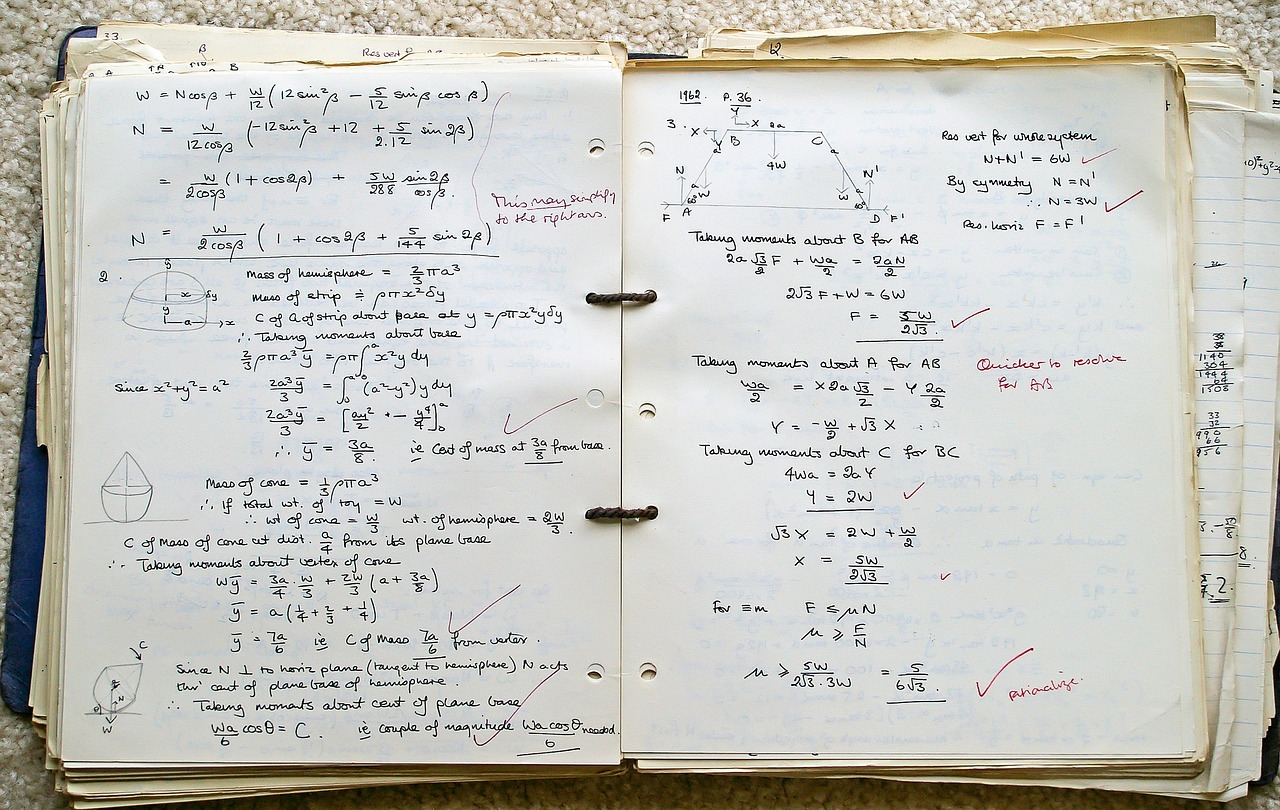 33.
β
Res vert
B
W = Ncosβ + W/12 (12 sin²β − 5/12 sinβ cosβ)
N = W/12cosβ (−12sin²β + 12 + 5/2.12 sin2β)
= W/2cosβ (1 + cos2β) + 5W/288 sin2β/cosβ.
This may simplify
to the right ans.
N = W/2cosβ (1 + cos2β + 5/144 sin2β)
2.
y
x δy
y
a x
Mass of hemisphere = 2/3 πa³
Mass of strip ≑ ρπx²δy
C of G of strip about base at y = ρπx²yδy
∴ Taking moments about base
2/3 ρπa³ȳ = ρπ∫₀ᵃ x²y dy
Since x²+y²=a² 2a³ȳ/3 = ∫₀ᵃ (a²−y²)y dy
2a³ȳ/3 = [ay²/2 − y⁴/4]₀ᵃ
∴ ȳ = 3a/8 ie Cent of mass at 3a/8 from base.
Mass of cone = 1/3 ρπa³
∴ If total wt. of toy = W
∴ wt of cone = W/3 wt. of hemisphere = 2W/3.
C of Mass of cone at dist. a/4 from its plane base
∴ Taking moments about vertex of cone
Wȳ = 3a/4 . W/3 + 2W/3 (a + 3a/8)
ȳ = a(1/4 + 2/3 + 1/4)
ȳ = 7a/6 ie C of Mass 7a/6 from vertex.
C
θ N
W
Since N ⊥ to horiz plane (tangent to hemisphere) N acts
thro' cent of plane base of hemisphere.
∴ Taking moments about cent of plane base
Wa/6 cosθ = C. ie couple of magnitude Wa cosθ/6 needed.
12.
1962. P. 36.
Y
3. X X 2a
Y B C
a a
4W
N N'
a W W a
60° 60°
F A D F'
Res vert for whole system
N+N' = 6W
By symmetry N = N'
∴ N = 3W
Res. horiz F = F'
Taking moments about B for AB
2a √3/2 F + Wa/2 = 2aN/2
2√3 F + W = 6W
F = 5W/2√3.
Taking moments about A for AB
Quicker to resolve
for AB
Wa/2 = X 2a √3/2 − Y 2a/2
Y = −W/2 + √3 X
Taking moments about C for BC
4Wa = 2aY
Y = 2W
√3 X = 2W + W/2
X = 5W/2√3
For ≡m F ≤ μN
μ ≥ F/N
μ ≥ 5W/2√3.3W = 5/6√3.
rationalize.
38
38
1140
304
1444
64
1508
33
32
990
66
956
8.
2.